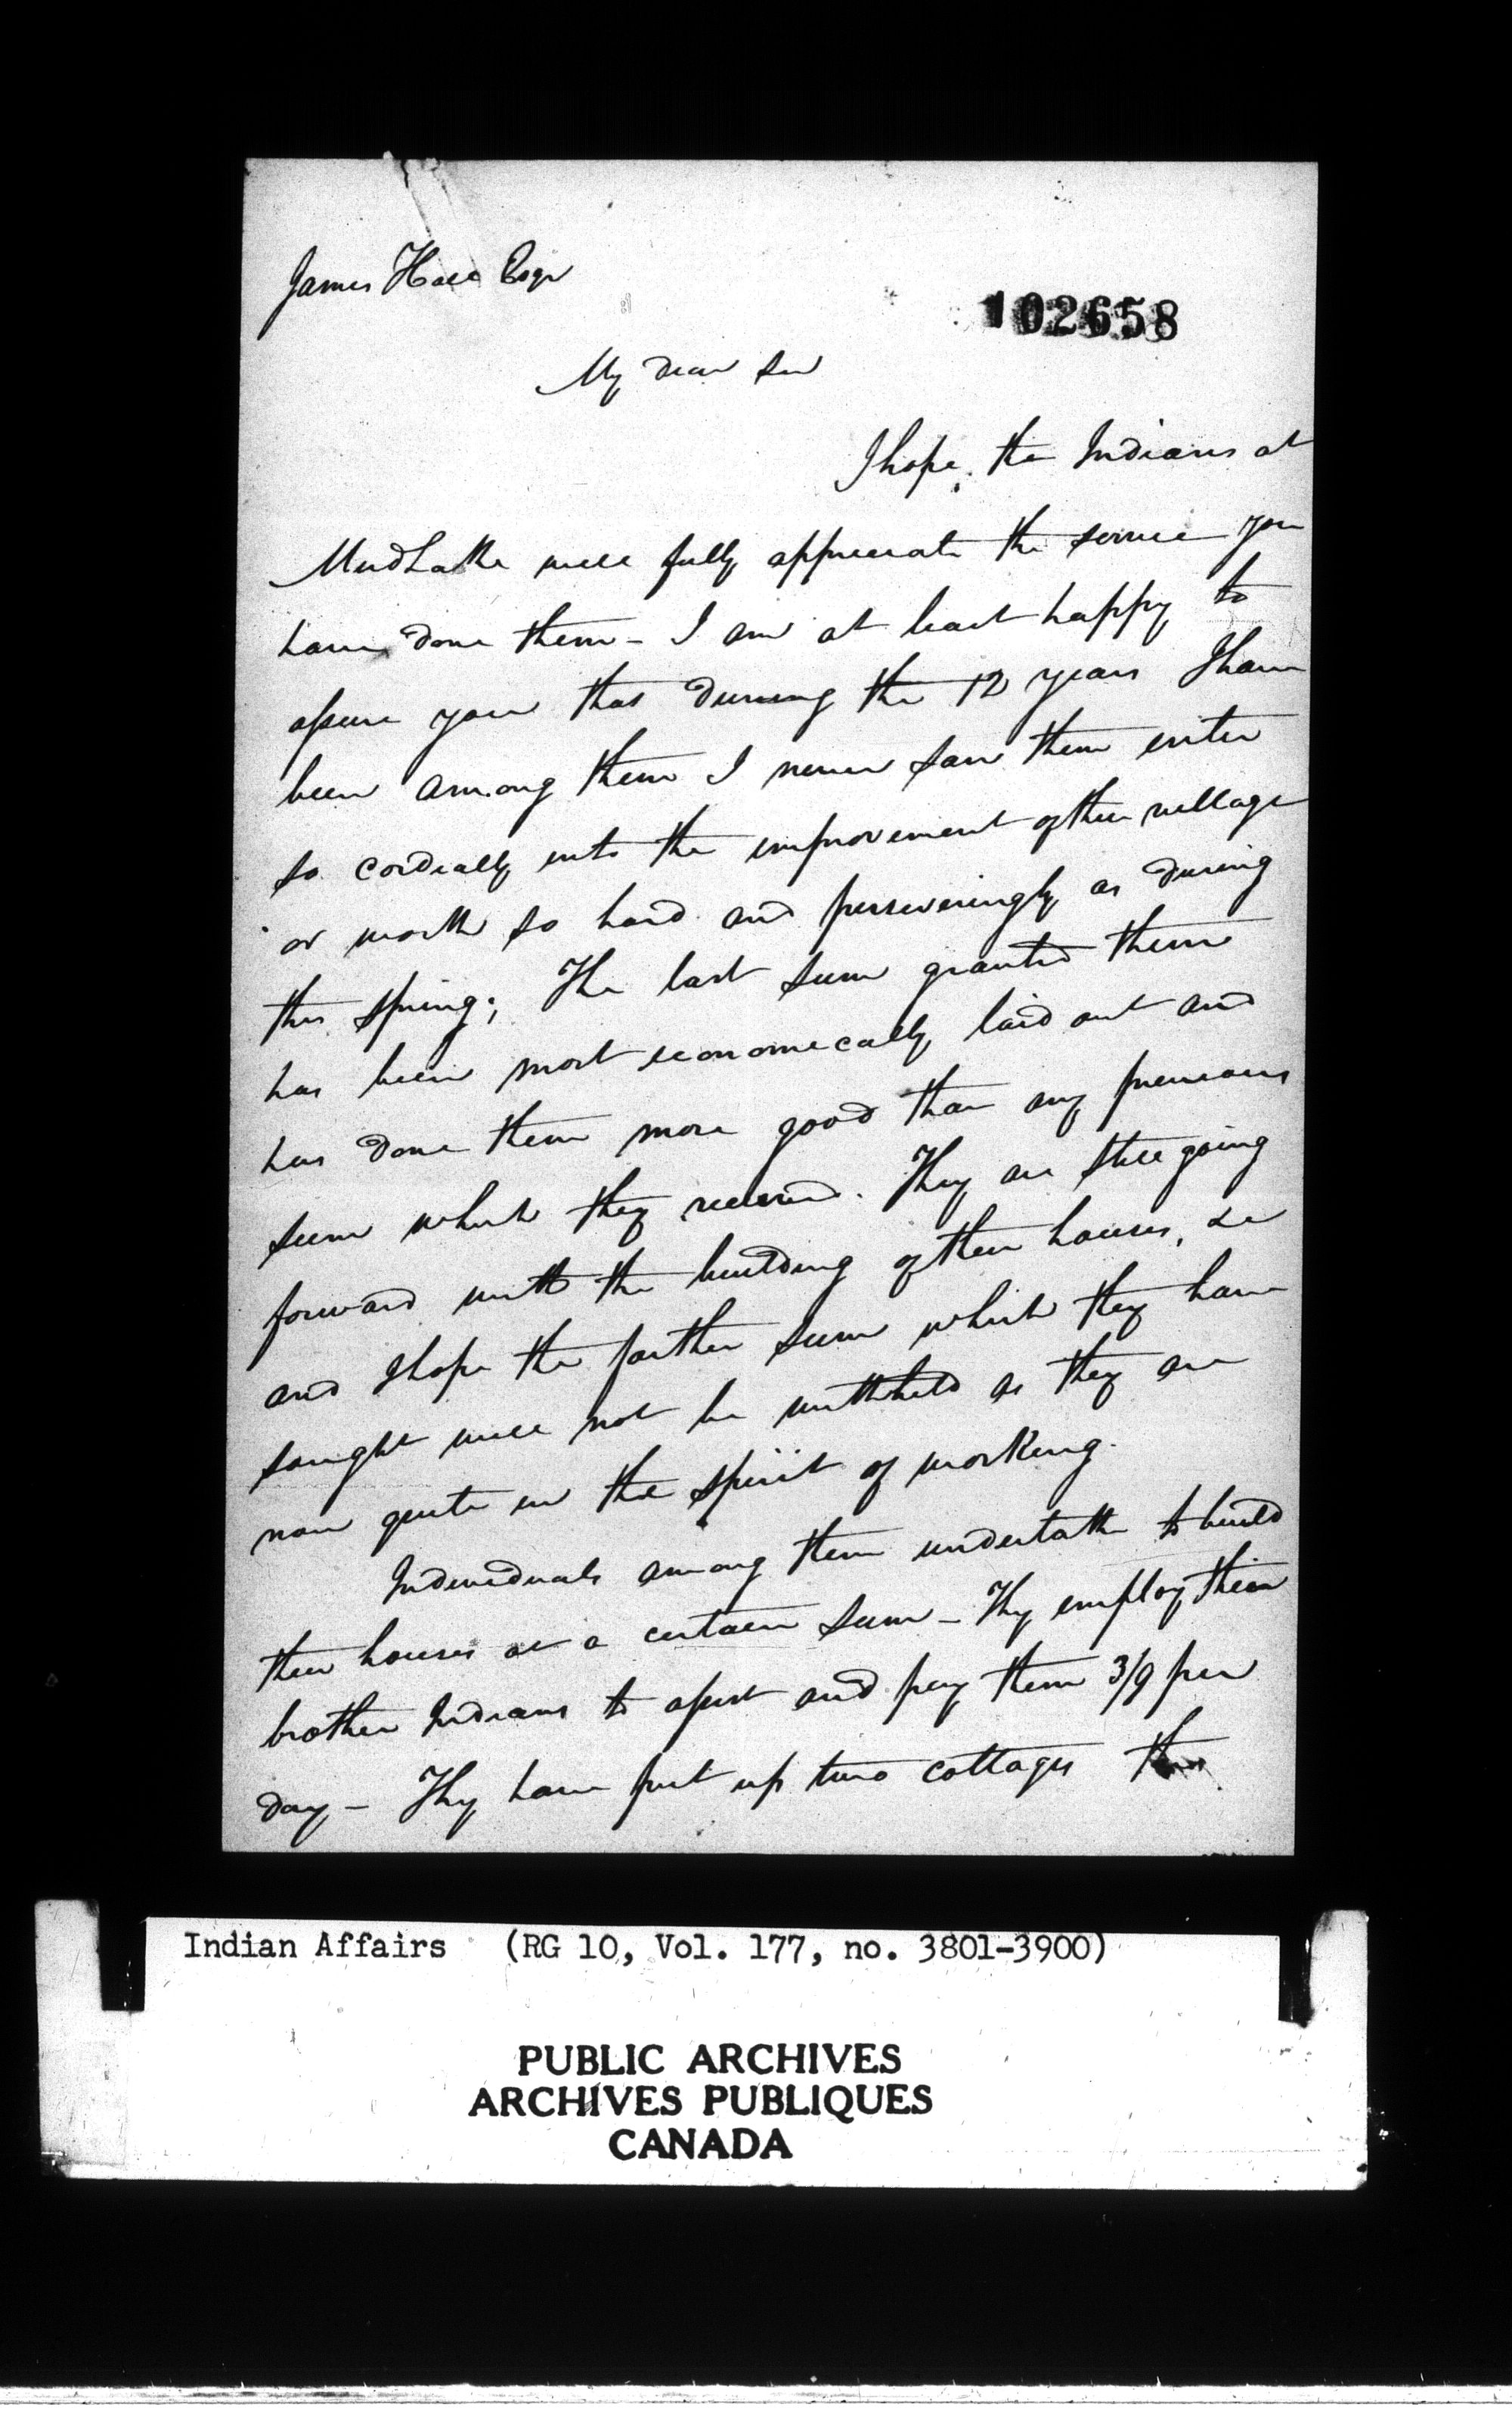 James Hall Esqr
102658
My dear Sir
I hope the Indians at
Mud Lake will fully appreciate the service you
have done them - I am at least happy to
assure you that during the 12 years I have
been among them I never saw them enter
so cordially into the improvement of their village
or work so hard and perseveringly as during
this spring; The last sum granted them
has been most economically laid out and
has done them more good than any previous
sum which they received. They are still going
forward with the building of their houses, &c
and I hope the farther sum which they have
sought will not be withheld as they are
now quite in the spirit of working.
Individuals among them undertake to build
their houses at a certain sum - They employ their
brother Indians to assist and pay them 3/9 per
day - They have put up two cottages this
Indian Affairs (RG 10, Vol. 177, no. 3801-3900)
PUBLIC ARCHIVES
ARCHIVES PUBLIQUES
CANADA